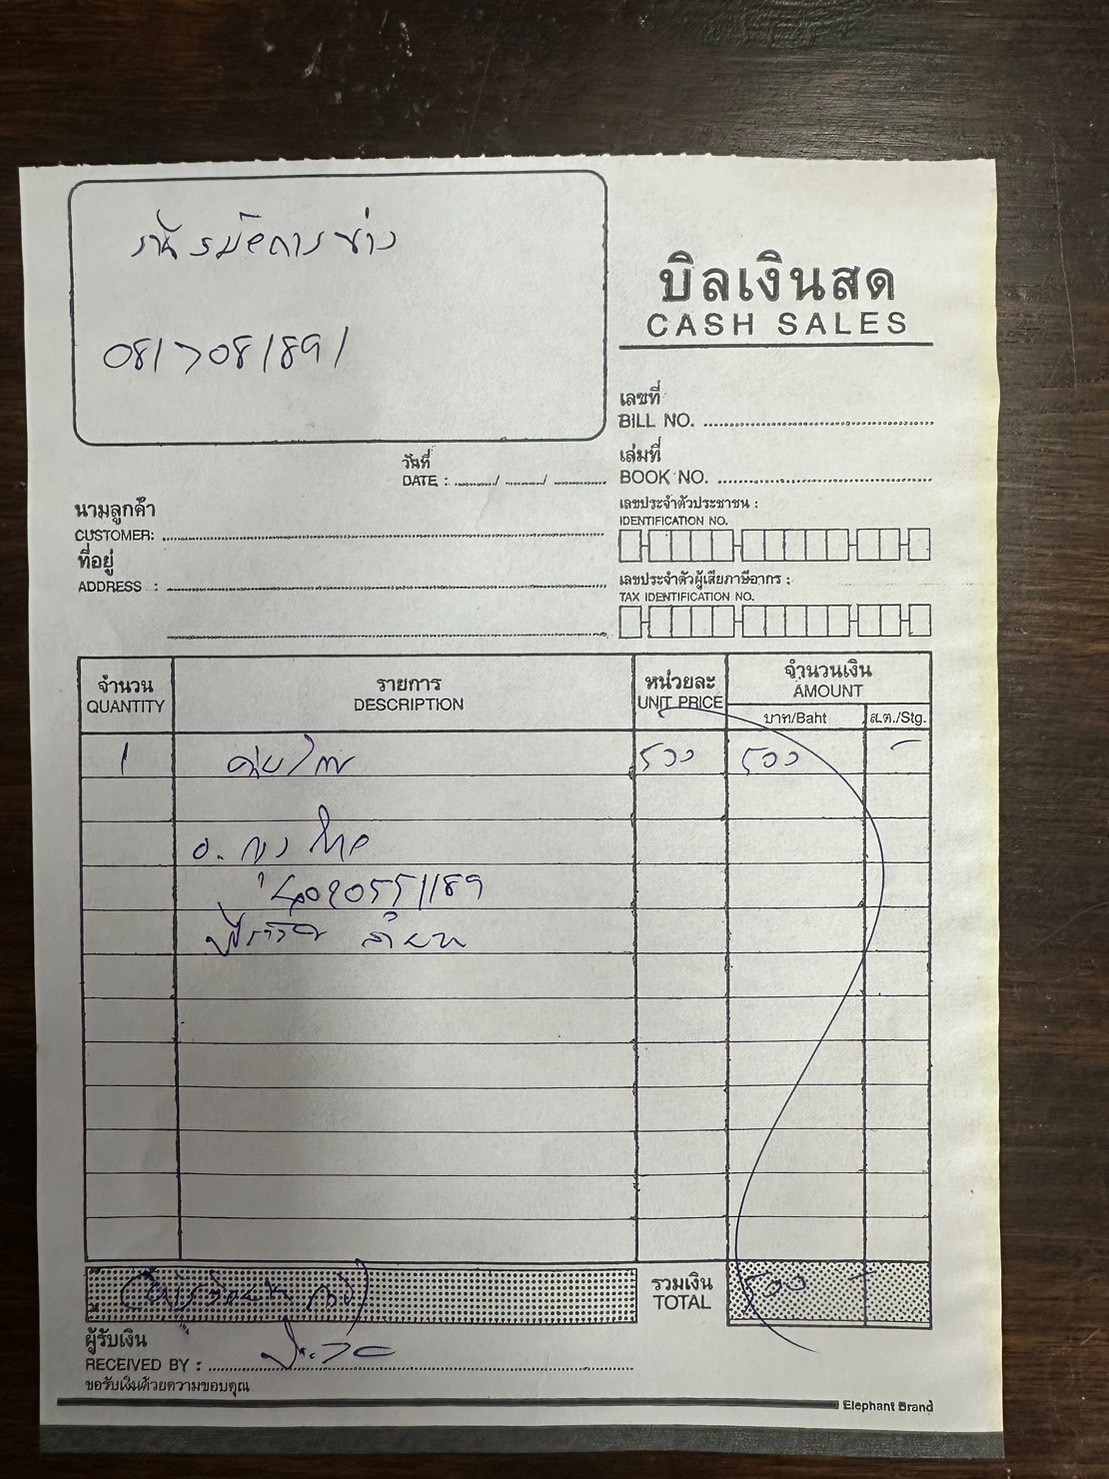 บิลเงินสด
CASH SALES
0817081891
เลขที่
BILL NO.
วันที่
DATE : / /
เล่มที่
BOOK NO.
นามลูกค้า
CUSTOMER:
ที่อยู่
ADDRESS :
เลขประจำตัวประชาชน :
IDENTIFICATION NO.
เลขประจำตัวผู้เสียภาษีอากร :
TAX IDENTIFICATION NO.
จำนวน รายการ หน่วยละ จำนวนเงิน
QUANTITY DESCRIPTION UNIT PRICE AMOUNT
บาท/Baht ส.ต./Stg.
1 500 500 -
รวมเงิน 500 -
TOTAL
ผู้รับเงิน
RECEIVED BY :
ขอรับเงินด้วยความขอบคุณ
Elephant Brand